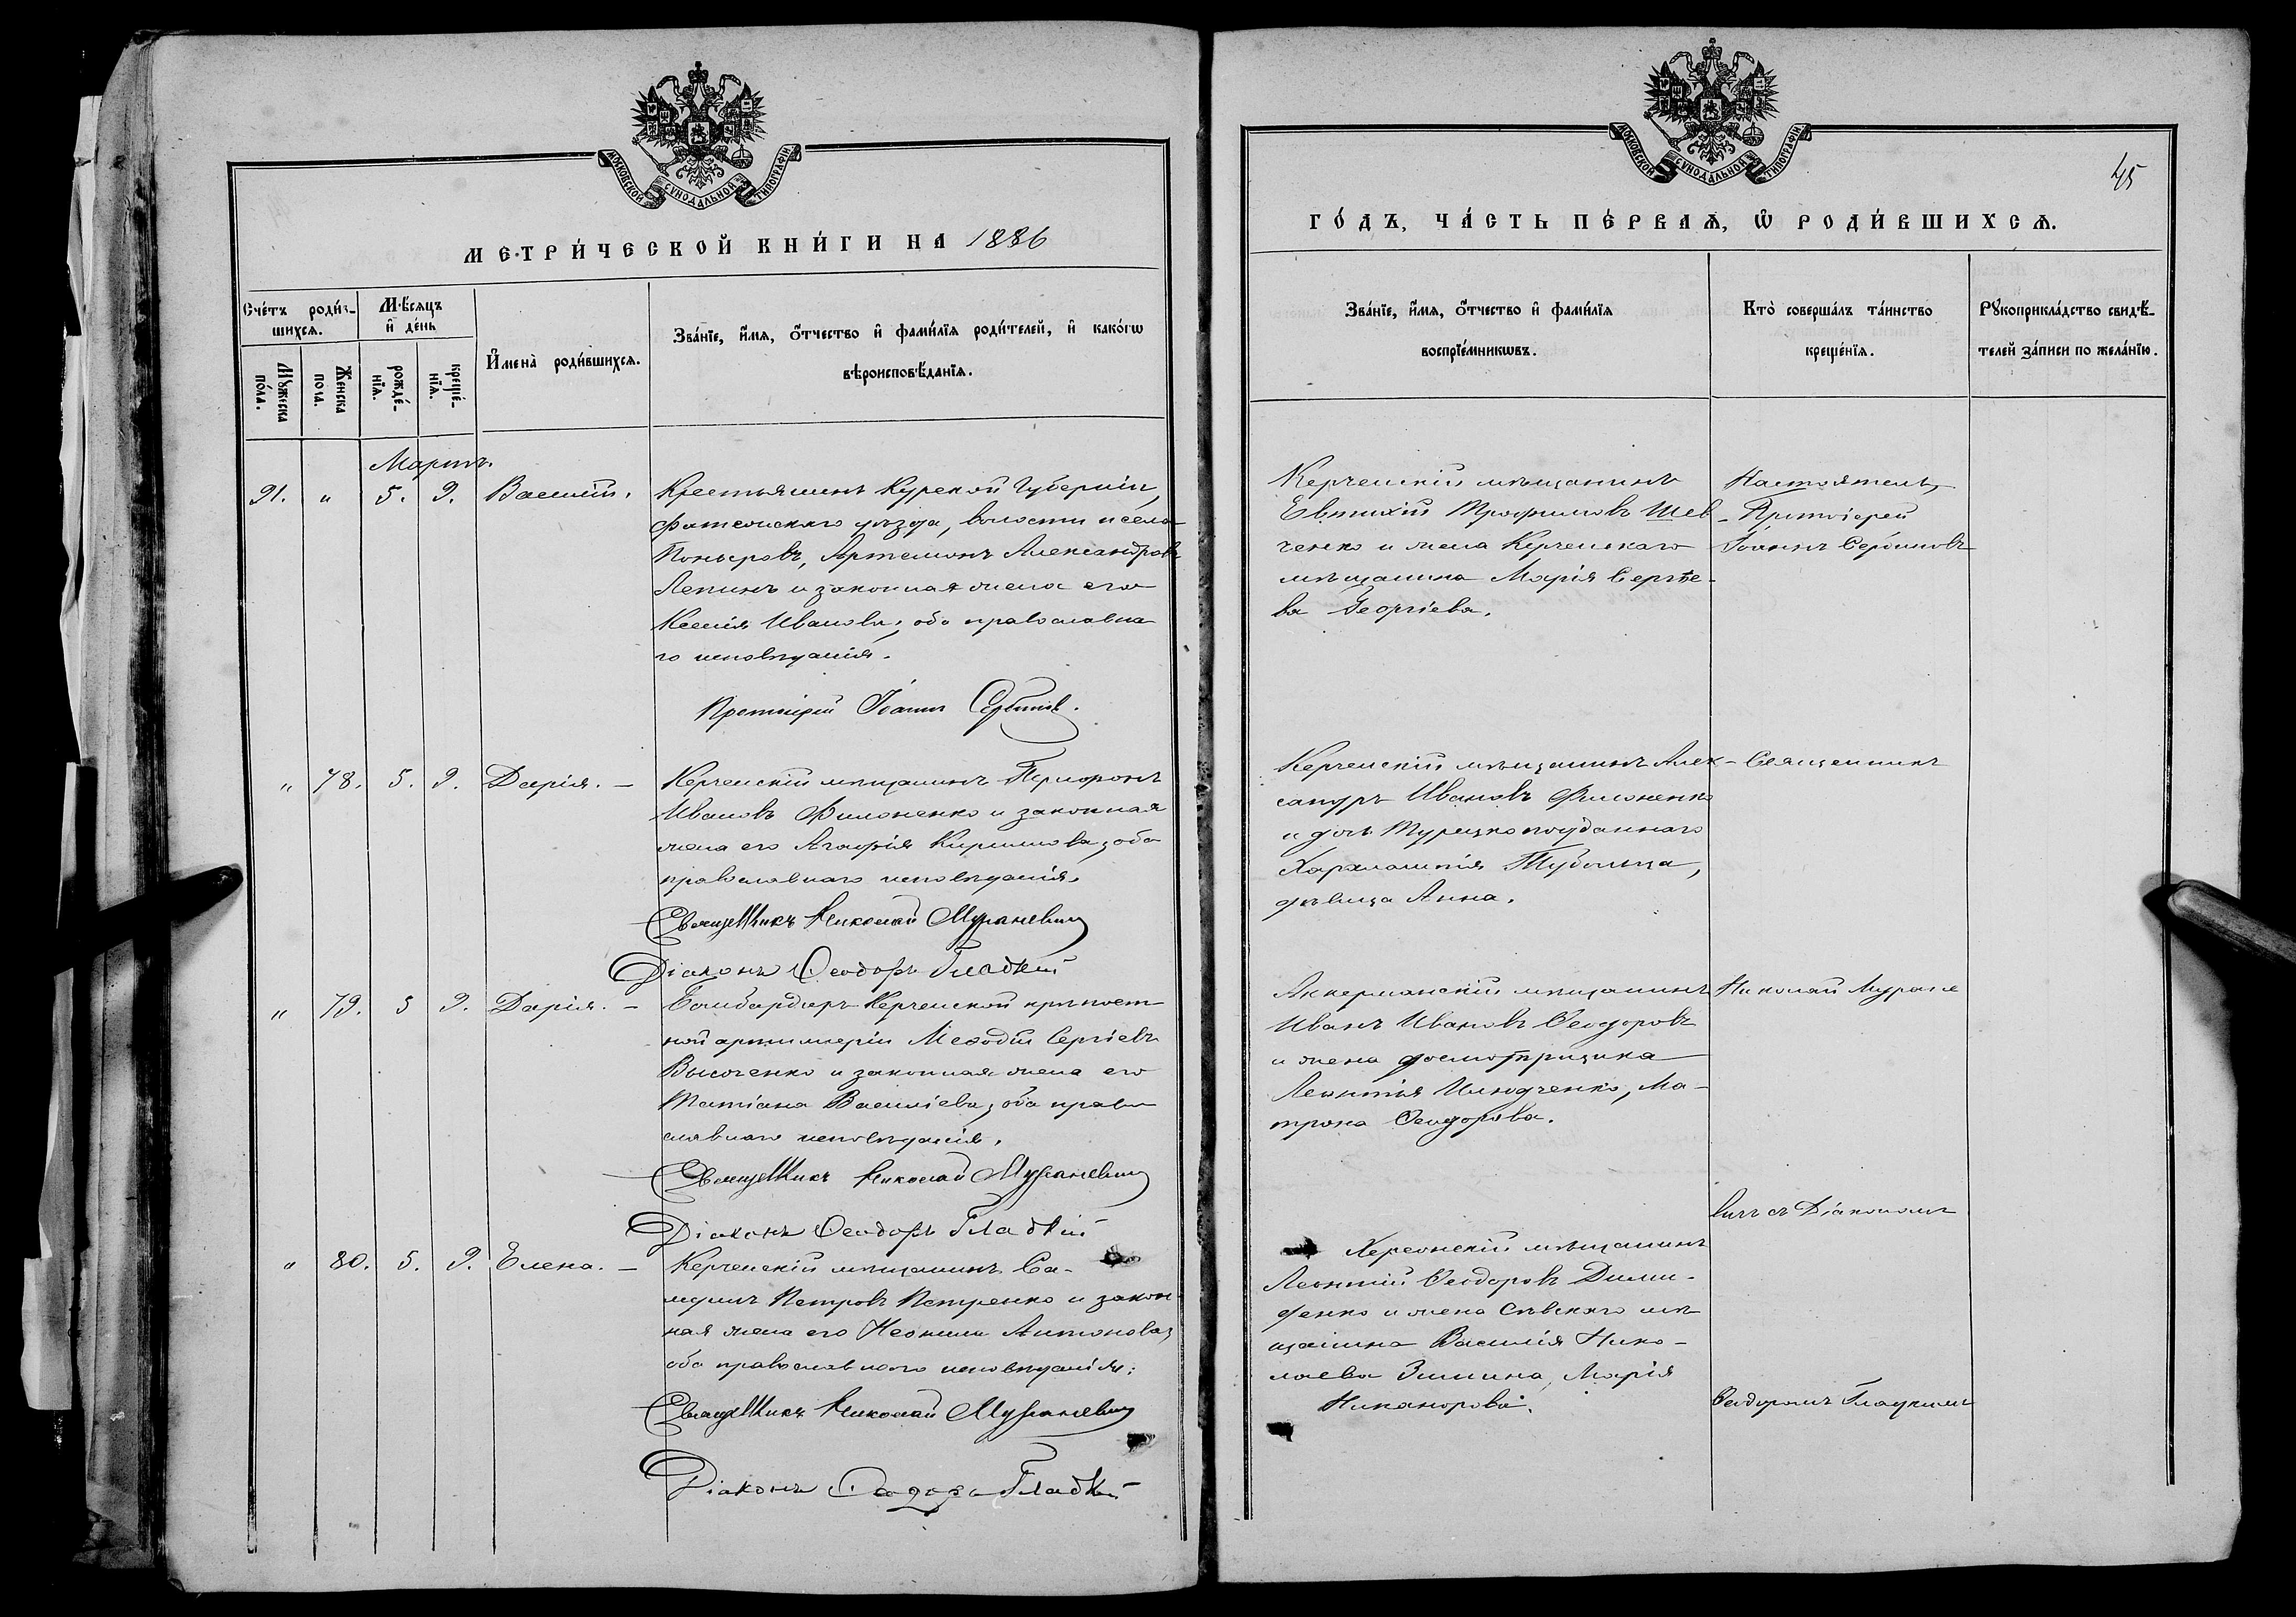 МОСКОВСКОЙ СѴНОДАЛЬНОЙ ТИПОГРАФІИ
МЕТРИ́ЧЕСКОЙ КНИ́ГИ НА 1886
Сче́тъ роди́в-
шихсѧ.
Мѣ́сѧцъ
и҆ де́нь
И҆мена̀ роди́вшихсѧ.
Зва́нїе, и҆́мѧ, ѻ҆́тчество и҆ фами́лїѧ роди́телей, и҆ како́гѡ
вѣроисповѣ́данїѧ.
Мꙋ́жеска
по́ла.
Же́нска
пола.
рожде́-
нїѧ.
креще́-
нїѧ.
Мартъ.
91. " 5. 9. Василій.
Крестьянинъ Курской Губерніи,
Фатежскаго уѣзда, волости и села
Поныровъ, Артемонъ Александровъ
Лепинъ и законная жена его
Ксенія Иванова, оба православна
го исповѣданія.
Протоіерей Іоаннъ Сербиновъ.
" 78. 5. 9. Дарія. —
Керченскій мѣщанинъ
Ивановъ Филоненко и законная
жена его Агафія Кириллова, оба
православнаго исповѣданія.
Священникъ Николай Мураневичъ
Діаконъ Ѳеодоръ Гладкій
" 79. 5 9. Дарія. —
Бомбардиръ Керченской крѣпост-
ной артиллеріи Меѳодій Сергіевъ
Высоченко и законная жена его
Татіана Василіева, оба право
славнаго исповѣданія.
Священникъ Николай Мураневичъ
Діаконъ Ѳеодоръ Гладкій
" 80. 5. 9. Елена. —
Керченскій мѣщанинъ Са-
муилъ Петровъ Петренко и закон-
ная жена его Неонила Антонова,
оба православнаго исповѣданія.
Священникъ Николай Мураневичъ
Діаконъ Ѳеодоръ Гладкій
МОСКОВСКОЙ СѴНОДАЛЬНОЙ ТИПОГРАФІИ
45
ГО́ДЪ, ЧА́СТЬ ПЕ́РВАѦ, Ѡ҆ РОДИ́ВШИХСѦ.
Зва́нїе, и҆́мѧ, ѻ҆́тчество и҆ фами́лїѧ
воспрїе́мникѡвъ.
Кто̀ соверша́лъ та́инство
креще́нїѧ.
Рꙋкоприкла́дство свидѣ́-
телей за́писи по жела́нїю.
Керченскій мѣщанинъ
Евтихій Трофимовъ Шев-
ченко и жена Керченскаго
мѣщанина Марія Сергѣе-
ва Георгіева.
Настоятель,
Протоіерей
Іоаннъ Сербиновъ
Керченскій мѣщанинъ Алек-
сандръ Ивановъ Филоненко
и дочь Турецкоподданнаго
Харлампія
дѣвица Анна.
Священникъ
Аккерманскій мѣщанинъ
Иванъ Ивановъ Ѳеодоровъ
и жена досмотрщика
Леонтія Ма-
трона Ѳеодорова.
Николай Муране
вичъ съ Діакономъ
Херсонскій мѣщанинъ
Леонтій Ѳеодоровъ Дими-
денко и жена Сѣвскаго мѣ
щанина Василія Нико-
лаева Зимина, Марія
Никанорова.
Ѳеодоромъ Гладкимъ